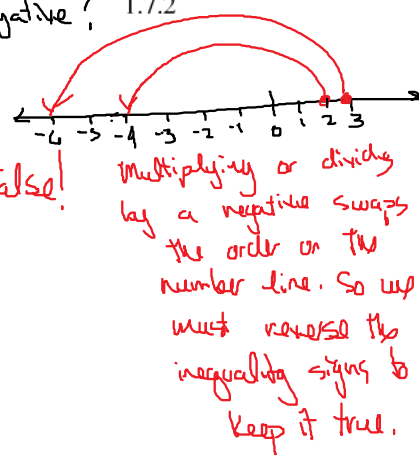 gative? 1.7.2
-6 -5 -4 -3 -2 -1 0 1 2 3
alse!
Multiplying or dividing
by a negative swaps
the order on the
number line. So we
must reverse the
inequality signs to
keep it true.